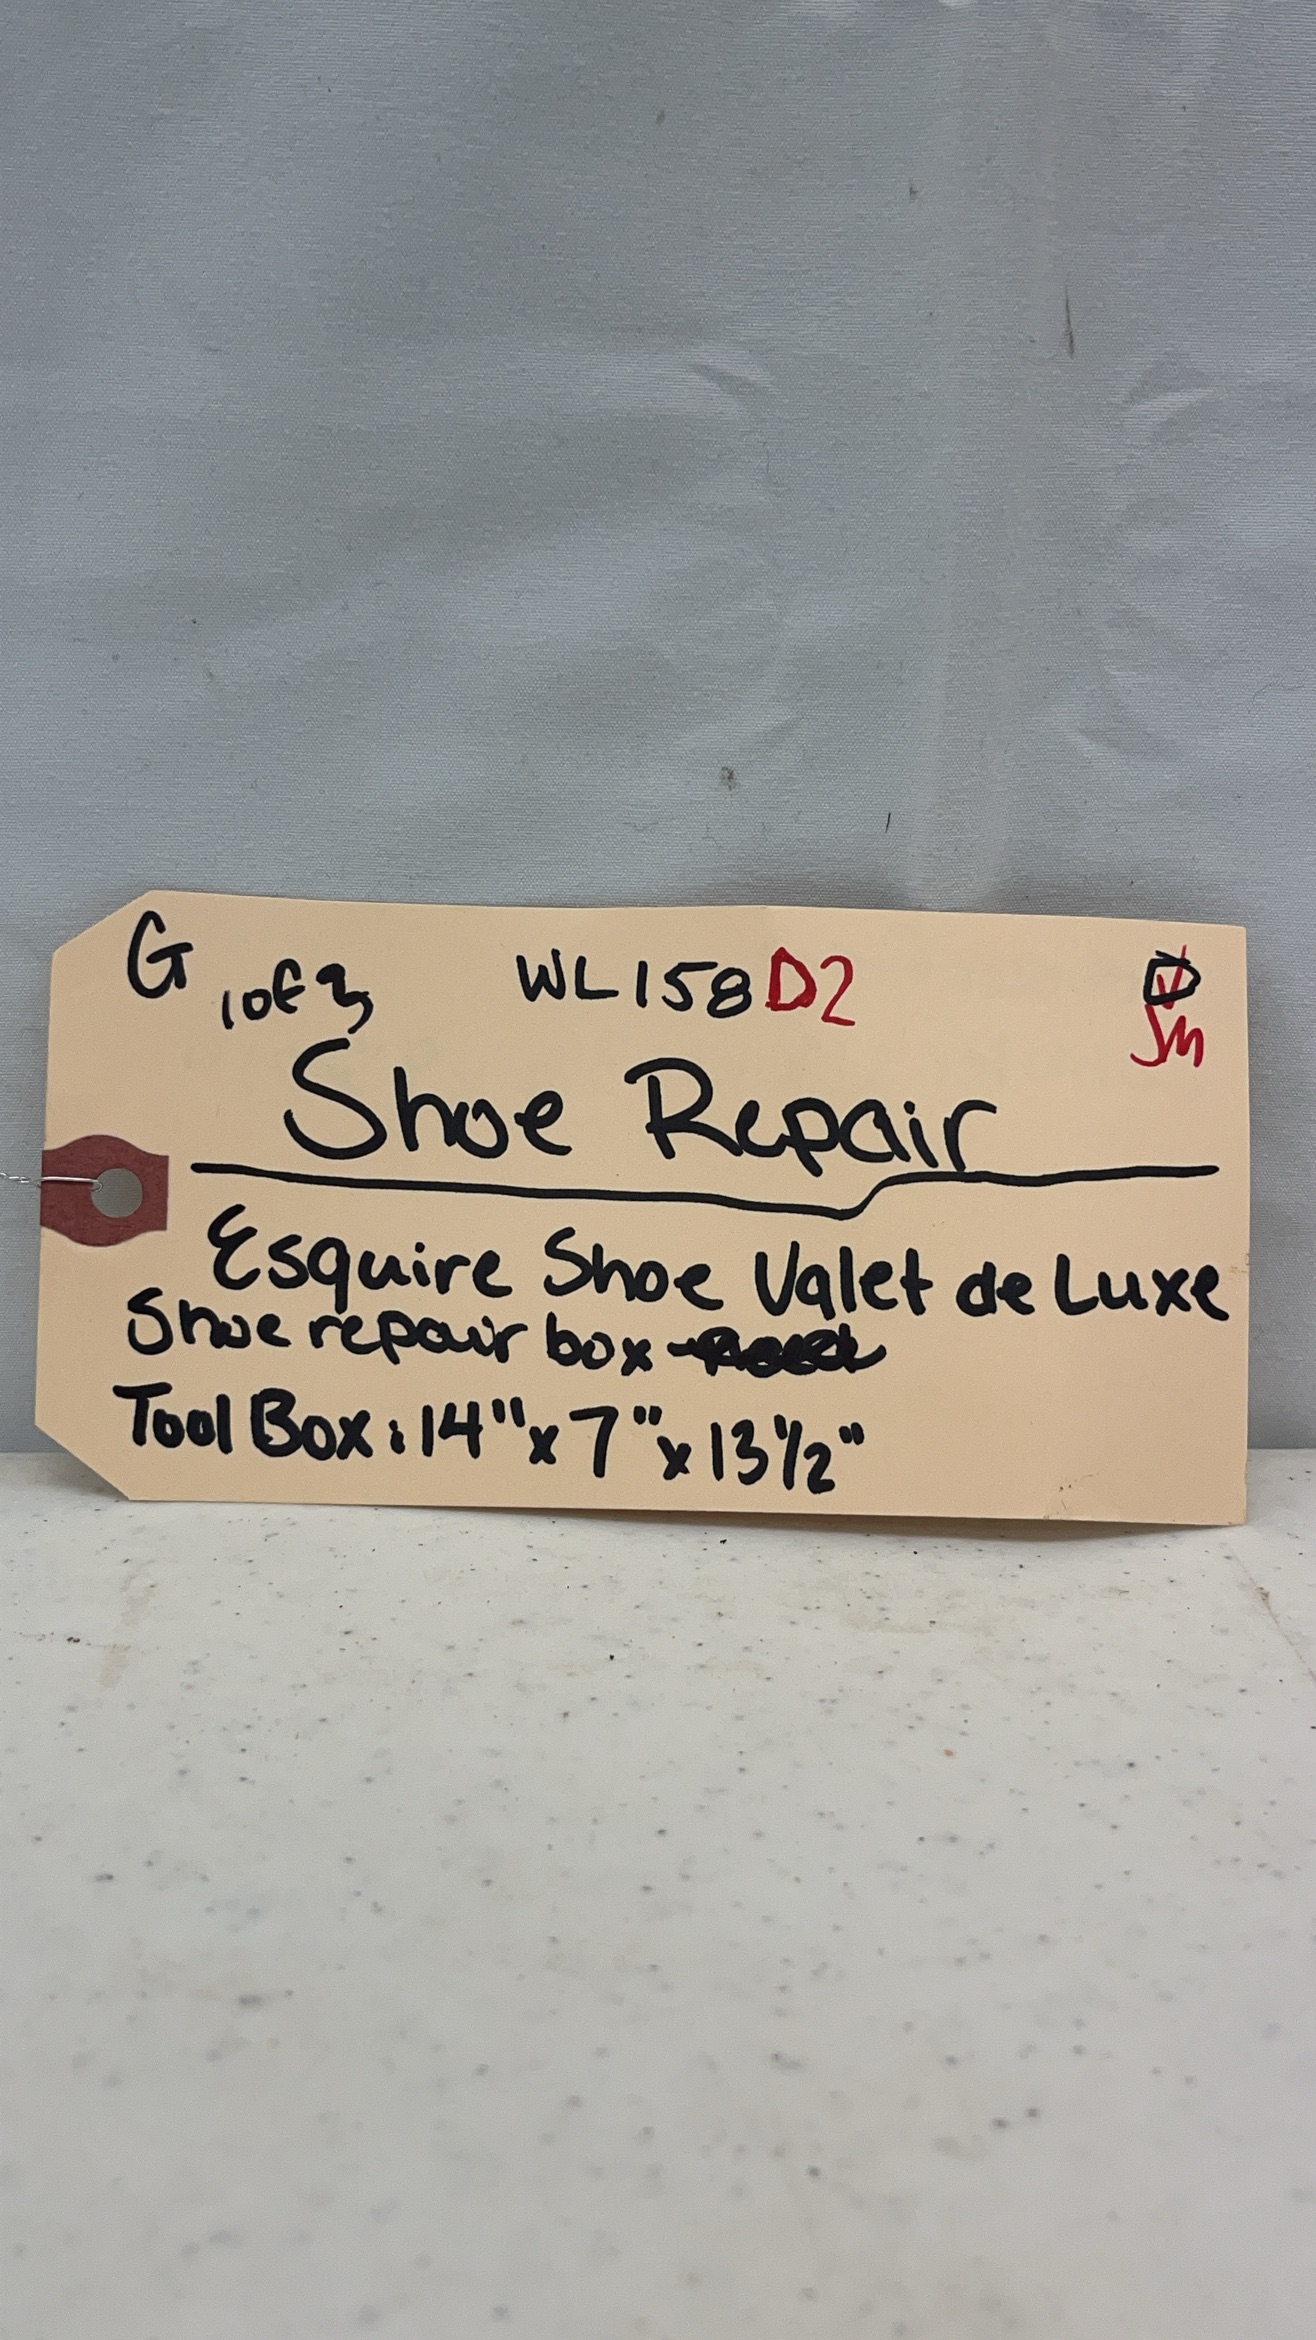 G 1 of 3 WL158D2
SM
Shoe Repair
Esquire Shoe Valet de Luxe
Shoe repair box
Tool Box: 14" x 7" x 13 1/2"